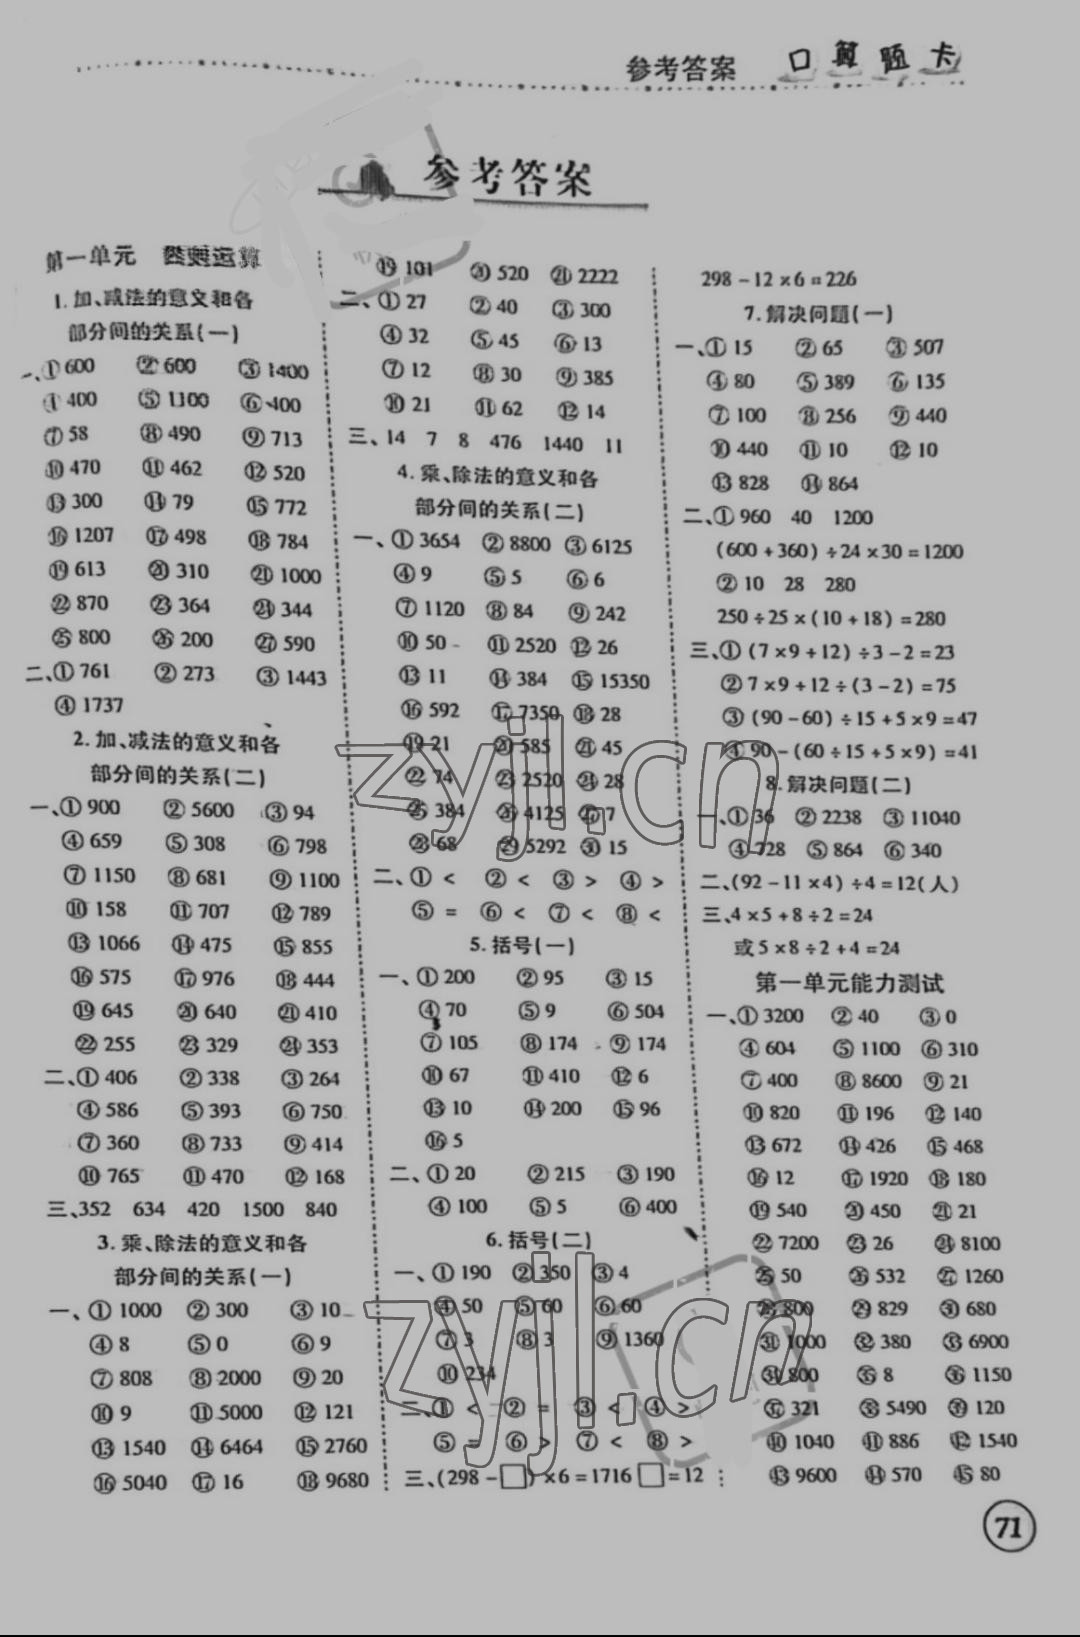 参考答案 口算题卡
参考答案
第一单元 四则运算
1.加、减法的意义和各
部分间的关系(一)
一、①600 ②600 ③1400
④400 ⑤1100 ⑥400
⑦58 ⑧490 ⑨713
⑩470 ⑪462 ⑫520
⑬300 ⑭79 ⑮772
⑯1207 ⑰498 ⑱784
⑲613 ⑳310 ㉑1000
㉒870 ㉓364 ㉔344
㉕800 ㉖200 ㉗590
二、①761 ②273 ③1443
④1737
2.加、减法的意义和各
部分间的关系(二)
一、①900 ②5600 ③94
④659 ⑤308 ⑥798
⑦1150 ⑧681 ⑨1100
⑩158 ⑪707 ⑫789
⑬1066 ⑭475 ⑮855
⑯575 ⑰976 ⑱444
⑲645 ⑳640 ㉑410
㉒255 ㉓329 ㉔353
二、①406 ②338 ③264
④586 ⑤393 ⑥750
⑦360 ⑧733 ⑨414
⑩765 ⑪470 ⑫168
三、352 634 420 1500 840
3.乘、除法的意义和各
部分间的关系(一)
一、①1000 ②300 ③10
④8 ⑤0 ⑥9
⑦808 ⑧2000 ⑨20
⑩9 ⑪5000 ⑫121
⑬1540 ⑭6464 ⑮2760
⑯5040 ⑰16 ⑱9680
⑲101 ⑳520 ㉑2222
二、①27 ②40 ③300
④32 ⑤45 ⑥13
⑦12 ⑧30 ⑨385
⑩21 ⑪62 ⑫14
三、14 7 8 476 1440 11
4.乘、除法的意义和各
部分间的关系(二)
一、①3654 ②8800 ③6125
④9 ⑤5 ⑥6
⑦1120 ⑧84 ⑨242
⑩50 ⑪2520 ⑫26
⑬11 ⑭384 ⑮15350
⑯592 ⑰7350 ⑱28
⑲21 ⑳585 ㉑45
㉒74 ㉓2520 ㉔28
㉕384 ㉖4125 ㉗7
㉘68 ㉙5292 ㉚15
二、①< ②< ③> ④>
⑤= ⑥< ⑦< ⑧<
5.括号(一)
一、①200 ②95 ③15
④70 ⑤9 ⑥504
⑦105 ⑧174 ⑨174
⑩67 ⑪410 ⑫6
⑬10 ⑭200 ⑮96
⑯5
二、①20 ②215 ③190
④100 ⑤5 ⑥400
6.括号(二)
一、①190 ②350 ③4
④50 ⑤60 ⑥60
⑦3 ⑧3 ⑨1360
⑩234
二、①< ②= ③< ④>
⑤= ⑥> ⑦< ⑧>
三、(298-□)×6=1716 □=12
298-12×6=226
7.解决问题(一)
一、①15 ②65 ③507
④80 ⑤389 ⑥135
⑦100 ⑧256 ⑨440
⑩440 ⑪10 ⑫10
⑬828 ⑭864
二、①960 40 1200
(600+360)÷24×30=1200
②10 28 280
250÷25×(10+18)=280
三、①(7×9+12)÷3-2=23
②7×9+12÷(3-2)=75
③(90-60)÷15+5×9=47
④90-(60÷15+5×9)=41
8.解决问题(二)
一、①36 ②2238 ③11040
④728 ⑤864 ⑥340
二、(92-11×4)÷4=12(人)
三、4×5+8÷2=24
或5×8÷2+4=24
第一单元能力测试
一、①3200 ②40 ③0
④604 ⑤1100 ⑥310
⑦400 ⑧8600 ⑨21
⑩820 ⑪196 ⑫140
⑬672 ⑭426 ⑮468
⑯12 ⑰1920 ⑱180
⑲540 ⑳450 ㉑21
㉒7200 ㉓26 ㉔8100
㉕50 ㉖532 ㉗1260
㉘800 ㉙829 ㉚680
㉛1000 ㉜380 ㉝6900
㉞800 ㉟8 ㊱1150
㊲321 ㊳5490 ㊴120
㊵1040 ㊶886 ㊷1540
㊸9600 ㊹570 ㊺80
71
zyjl.cn
zyjl.cn